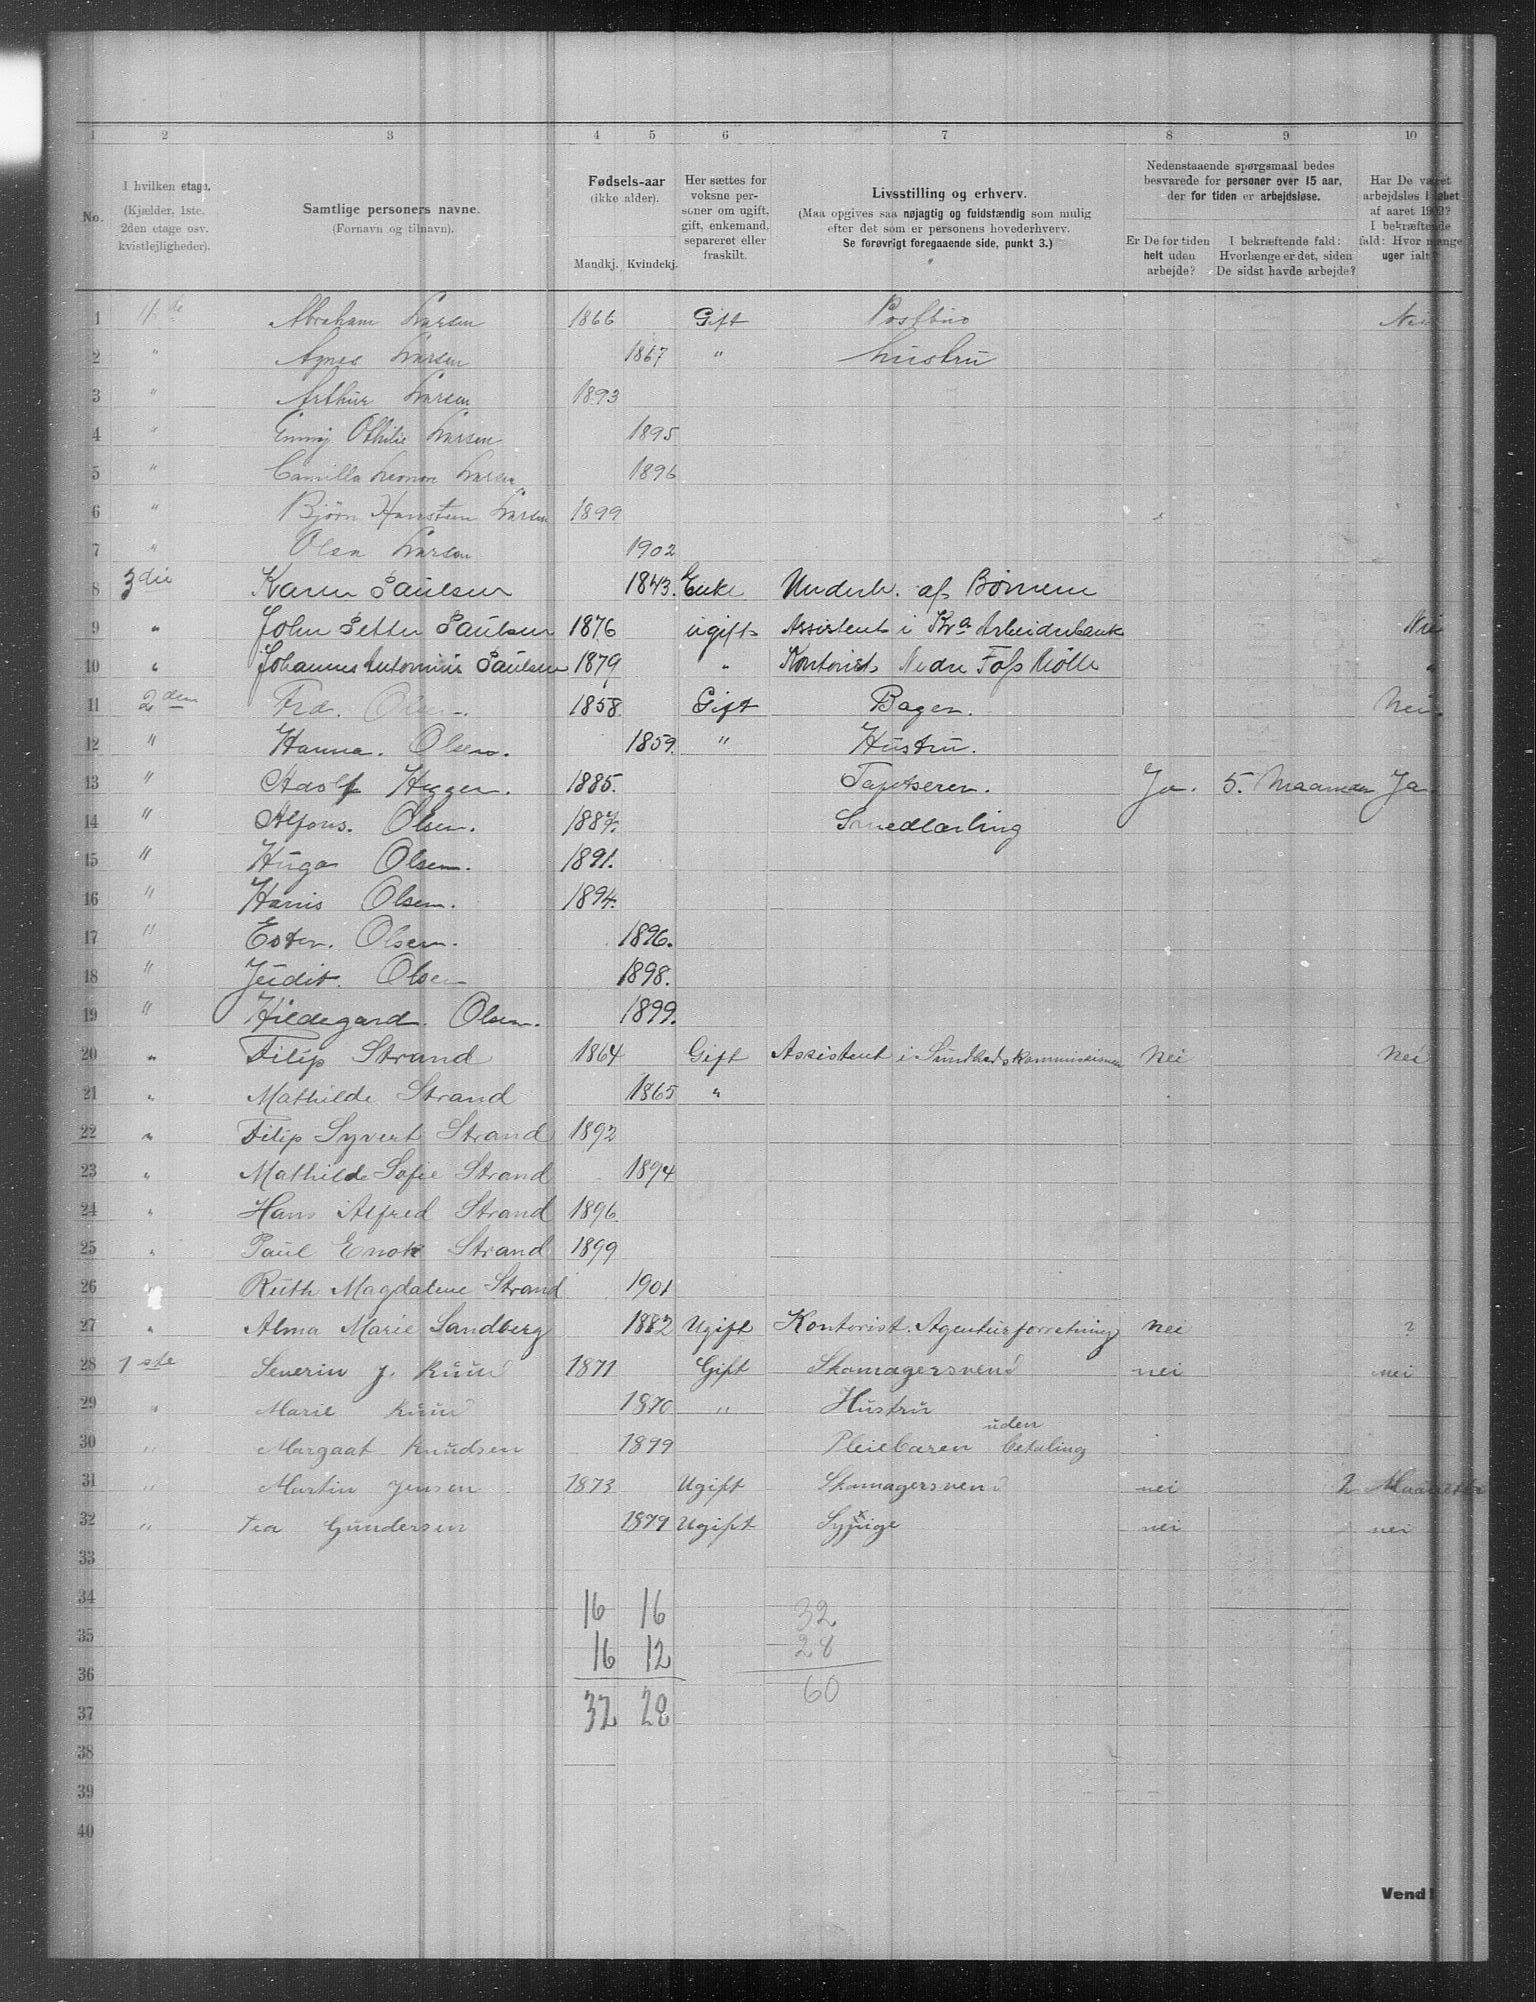 1 2 3 4 5 6 7 8 9 10
No.
I hvilken etage.
(Kjælder, 1ste,
2den etage osv.
kvistlejligheder).
Samtlige personers navne.
(Fornavn og tilnavn).
Fødsels-aar
(ikke alder).
Mandkj. Kvindekj.
Her sættes for
voksne per-
soner om ugift,
gift, enkemand,
separeret eller
fraskilt.
Livsstilling og erhverv.
(Maa opgives saa nøjagtig og fuldstændig som mulig
efter det som er personens hovederhverv.
Se forøvrigt foregaaende side, punkt 3.)
Nedenstaaende spørgsmaal bedes
besvarede for personer over 15 aar,
der for tiden er arbejdsløse.
Er De for tiden
helt uden
arbejde?
I bekræftende fald:
Hvorlænge er det, siden
De sidst havde arbejde?
Har De været
arbejdsløs i løbet
af aaret 1902?
I bekræftende
fald: Hvor mange
uger ialt?
1 Abraham Larsen 1866 Gift Postbud Nei
2 " Agnes Larsen 1867 " hustru
3 " Arthur Larsen 1893
4 " Othilie Larsen 1895
5 " Camilla Leonore Larsen 1896
6 " Bjørn Hansteen Larsen 1899
7 " Olea Larsen 1902
8 3die Karen Paulsen 1843. Enke Underh. af Børnene
9 " John Petter Paulsen 1876 ugift Assistent i Kra Arbeiderbank Nei
10 " Johannes Antonius Paulsen 1879 " Kontorist, Nedre Foss Mølle "
11 2den Frd. Olsen. 1858. Gift Bager. Nei.
12 " Hanna. Olsen. 1859. " Hustru.
13 " Adolf 1885. Tapetserer. Ja. 5. Maaneder Ja.
14 " Alfons. Olsen. Smedlærling
15 " Hugo Olsen. 1891.
16 " Olsen. 1894.
17 " Ester. Olsen. 1896.
18 " Judit. Olsen 1898.
19 " Hildegard. Olsen. 1899.
20 " Filip Strand 1864 Gift Assistent i Sundhedskommissionen Nei Nei
21 " Mathilde Strand 1865 "
22 " Filip Syvert Strand 1892
23 " Mathilde Sofie Strand 1894
24 " Hans Alfred Strand 1896
25 " Paul Enok Strand 1899
26 " Ruth Magdalene Strand 1901
27 " Alma Marie Sandberg 1882 Ugift Kontorist. Agenturforretning Nei ?
28 1ste Severin J. Ruud 1871 Gift Skomagersvend nei nei
29 " Marie Ruud 1870 " Hustru
30 " Margaat Knudsen 1899 Pleiebaren uden betaling
31 " Martin Jensen 1873 Ugift Skomagersvend nei 2 Maaneder
32 " Tea Gundersen 1879 Ugift Sypige nei nei
33
34 16 16 32
35 16 12 28
36 60
37 32 28
38
39
40
Vend!